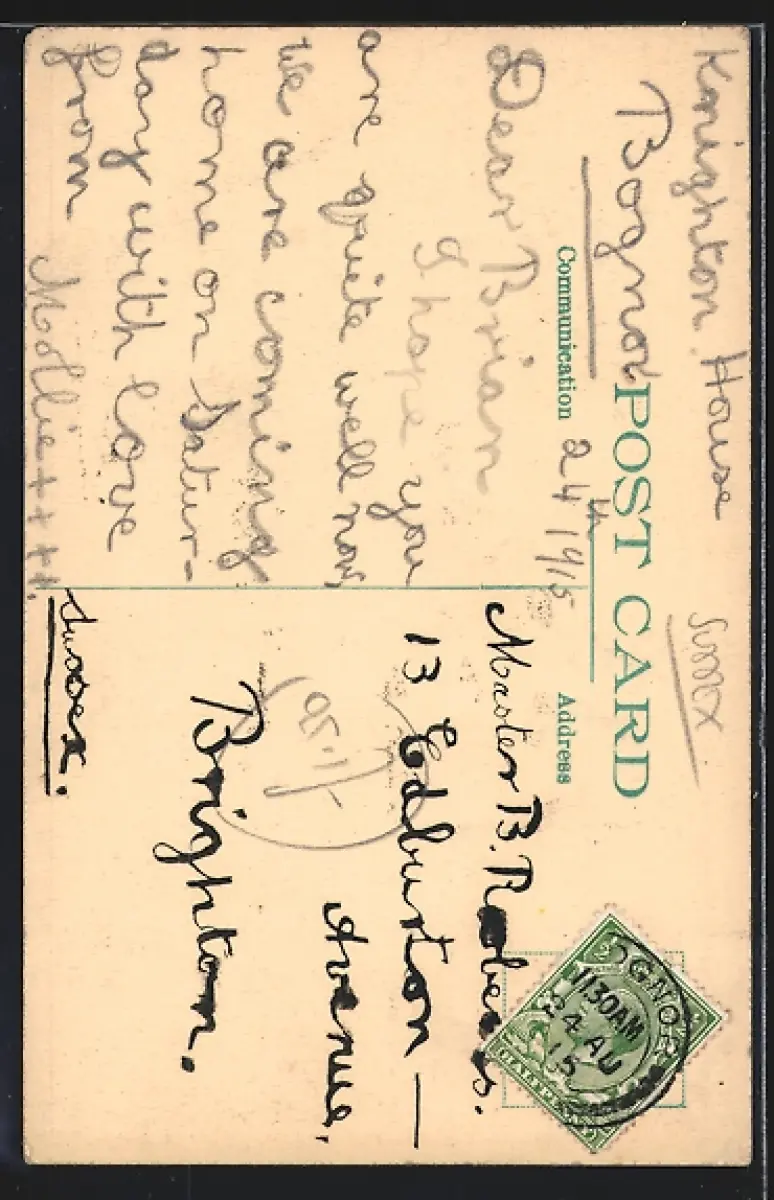 Knighton House
Sussex
Bognor
POST CARD
Communication
Address
24th 1915
Dear Brian
I hope you
are quite well now
We are coming
home on Satur-
day with love
from
Mollie++++.
Master B. Roberts.
13 Edburton —
Avenue,
Brighton.
Sussex.
OGNOR
11 30AM
24 AU
15
HALFPENNY